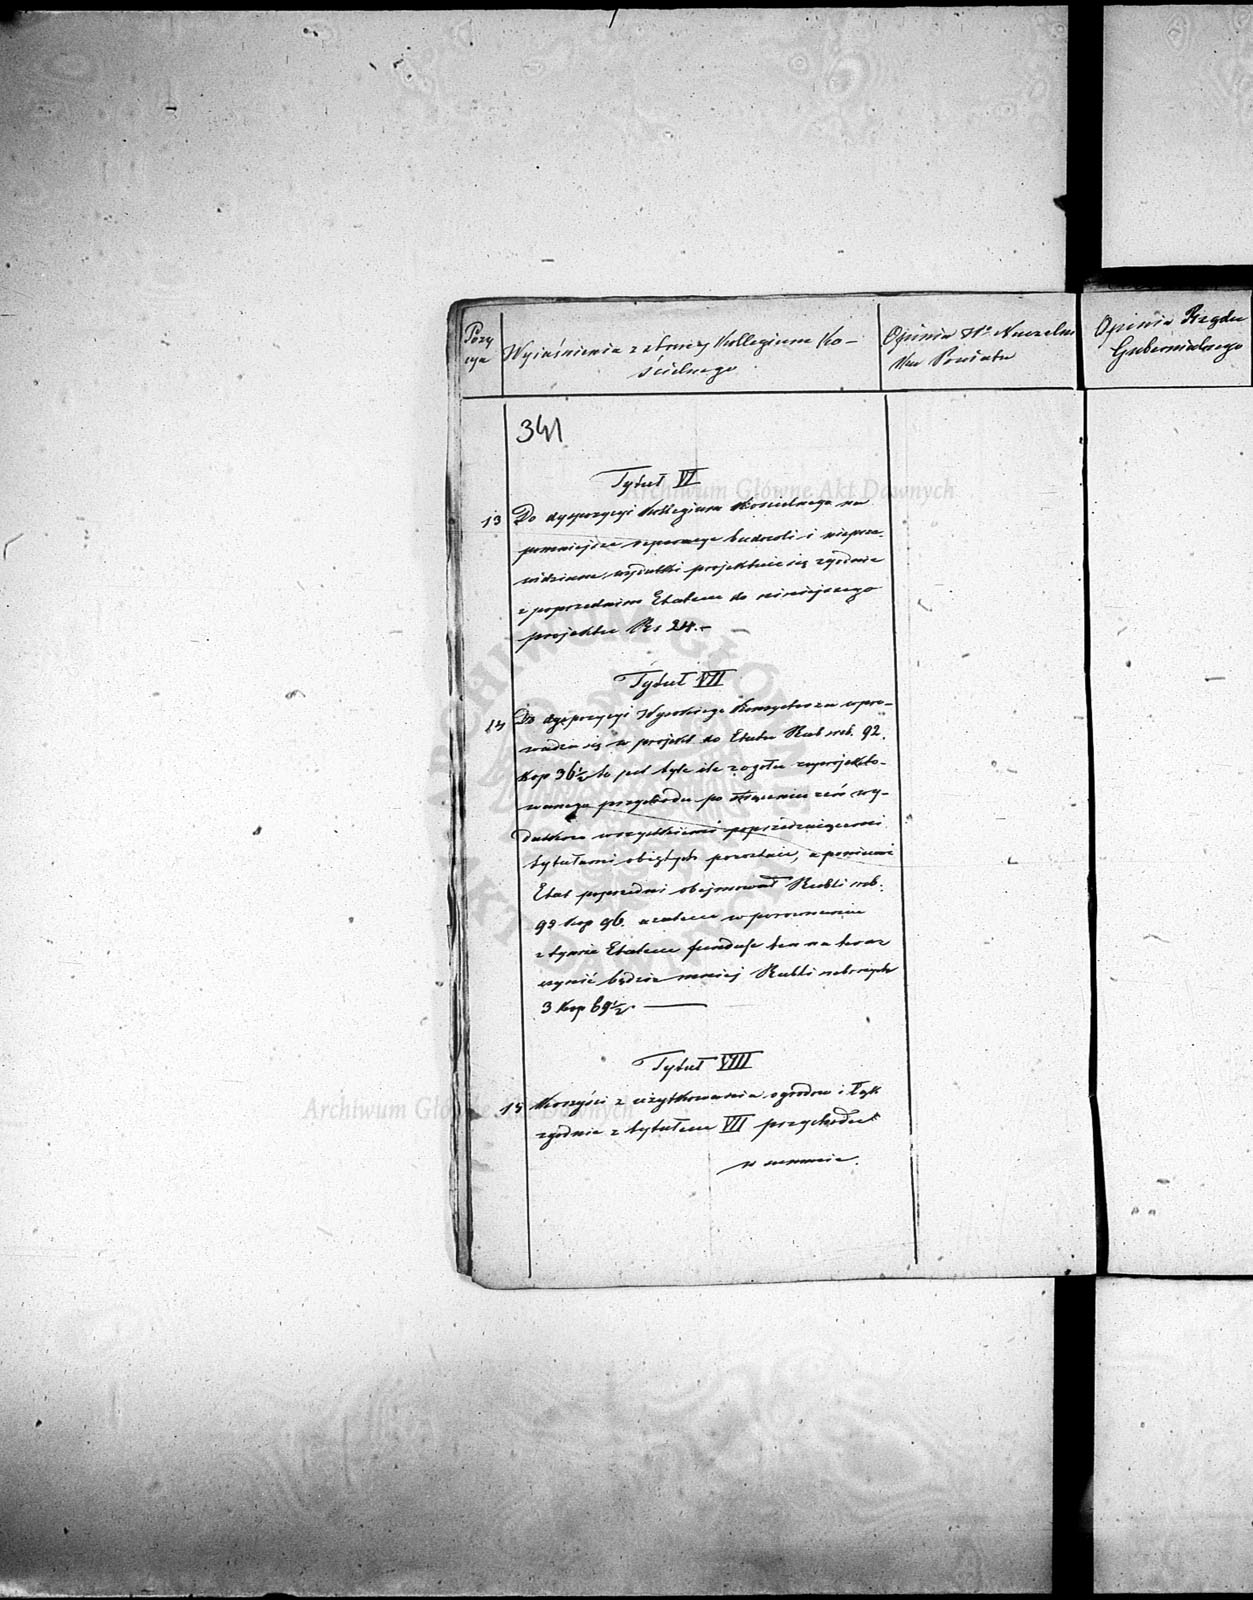 Pozy
cya
Wyiaśnienia ze strony Kollegium Ko-
ścielnego
Opinia Wo Naczelni
ka Powiatu
Opinia Rządu
Gubernialnego
341
Tytuł VI
Archiwum Główne Akt Dawnych
13 Do dyspozycyi Kollegium Kościelnego na
pomniejsze reperacye budowli i nieprze-
widziane wydatki projektuie się zgodnie
z poprzednim Etatem do niniejszego
projektu Rs 24.-
Tytuł VII
14 Do dyspozycyi Wysokiego Konsystorza wpro-
wadza się w projekt do Etatu Rub sreb. 92.
Kop 36½ to jest tyle ile z ogółu zaprojekto-
wanego przychodu po strąceniu zeń wy-
datków wszystkiemi poprzedzaiącemi
tytułami obiętych pozostaie, a ponieważ
Etat poprzedni obejmował Rubli sreb:
Kop 96. a zatem w porównaniu
z tymże Etatem fundusz ten na teraz
wynosić będzie mniej Rubli srebrnych
3 Kop 69½.
Tytuł VIII
15 Korzyści z użytkowania ogrodów i łąk
Archiwum Główne Akt Dawnych
zgodnie z tytułem VII przychodu
w summie.
ARCHIWUM GŁÓWNE
AKT DAWNYCH